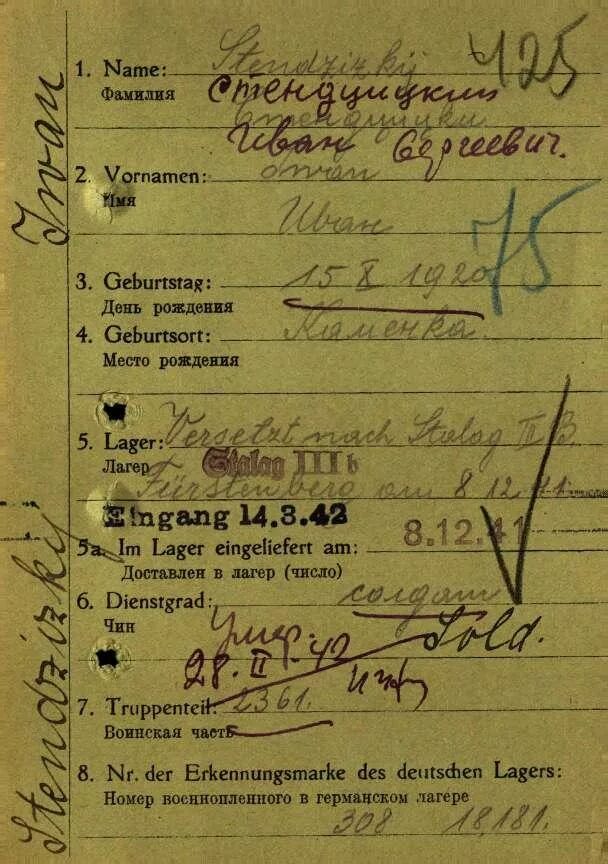 425
1. Name: Stendzizkij
Фамилия Стендцицкий
Иван Сергеевич.
2. Vornamen: Iwan
Имя
Иван
75
3. Geburtstag: 15 X 1920
День рождения
4. Geburtsort: Каменка
Место рождения
5. Lager: Versetzt nach Stalag III B
Лагер Stalag III b
Fürstenberg am 8 12 41
Eingang 14.3.42
8.12.41
5a. Im Lager eingeliefert am:
Доставлен в лагер (число)
6. Dienstgrad: солдат
Чин Умер. Sold.
28. II-42
7. Truppenteil: 2361.
Воинская часть
8. Nr. der Erkennungsmarke des deutschen Lagers:
Номер военнопленного в германском лагере
308 18,181.
Stendzizky Iwan